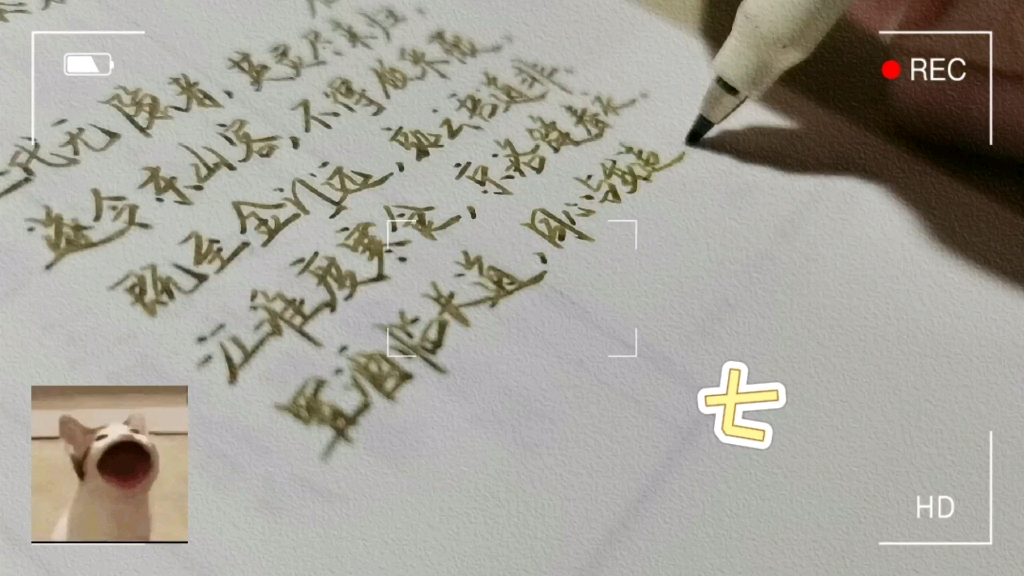 代无隐者，英灵尽来归。
遂令东山客，不得顾采薇。
既至金门远，孰云吾道非。
江淮度寒食，京洛缝春衣。
置酒临长道，同心与我违
REC
七
HD